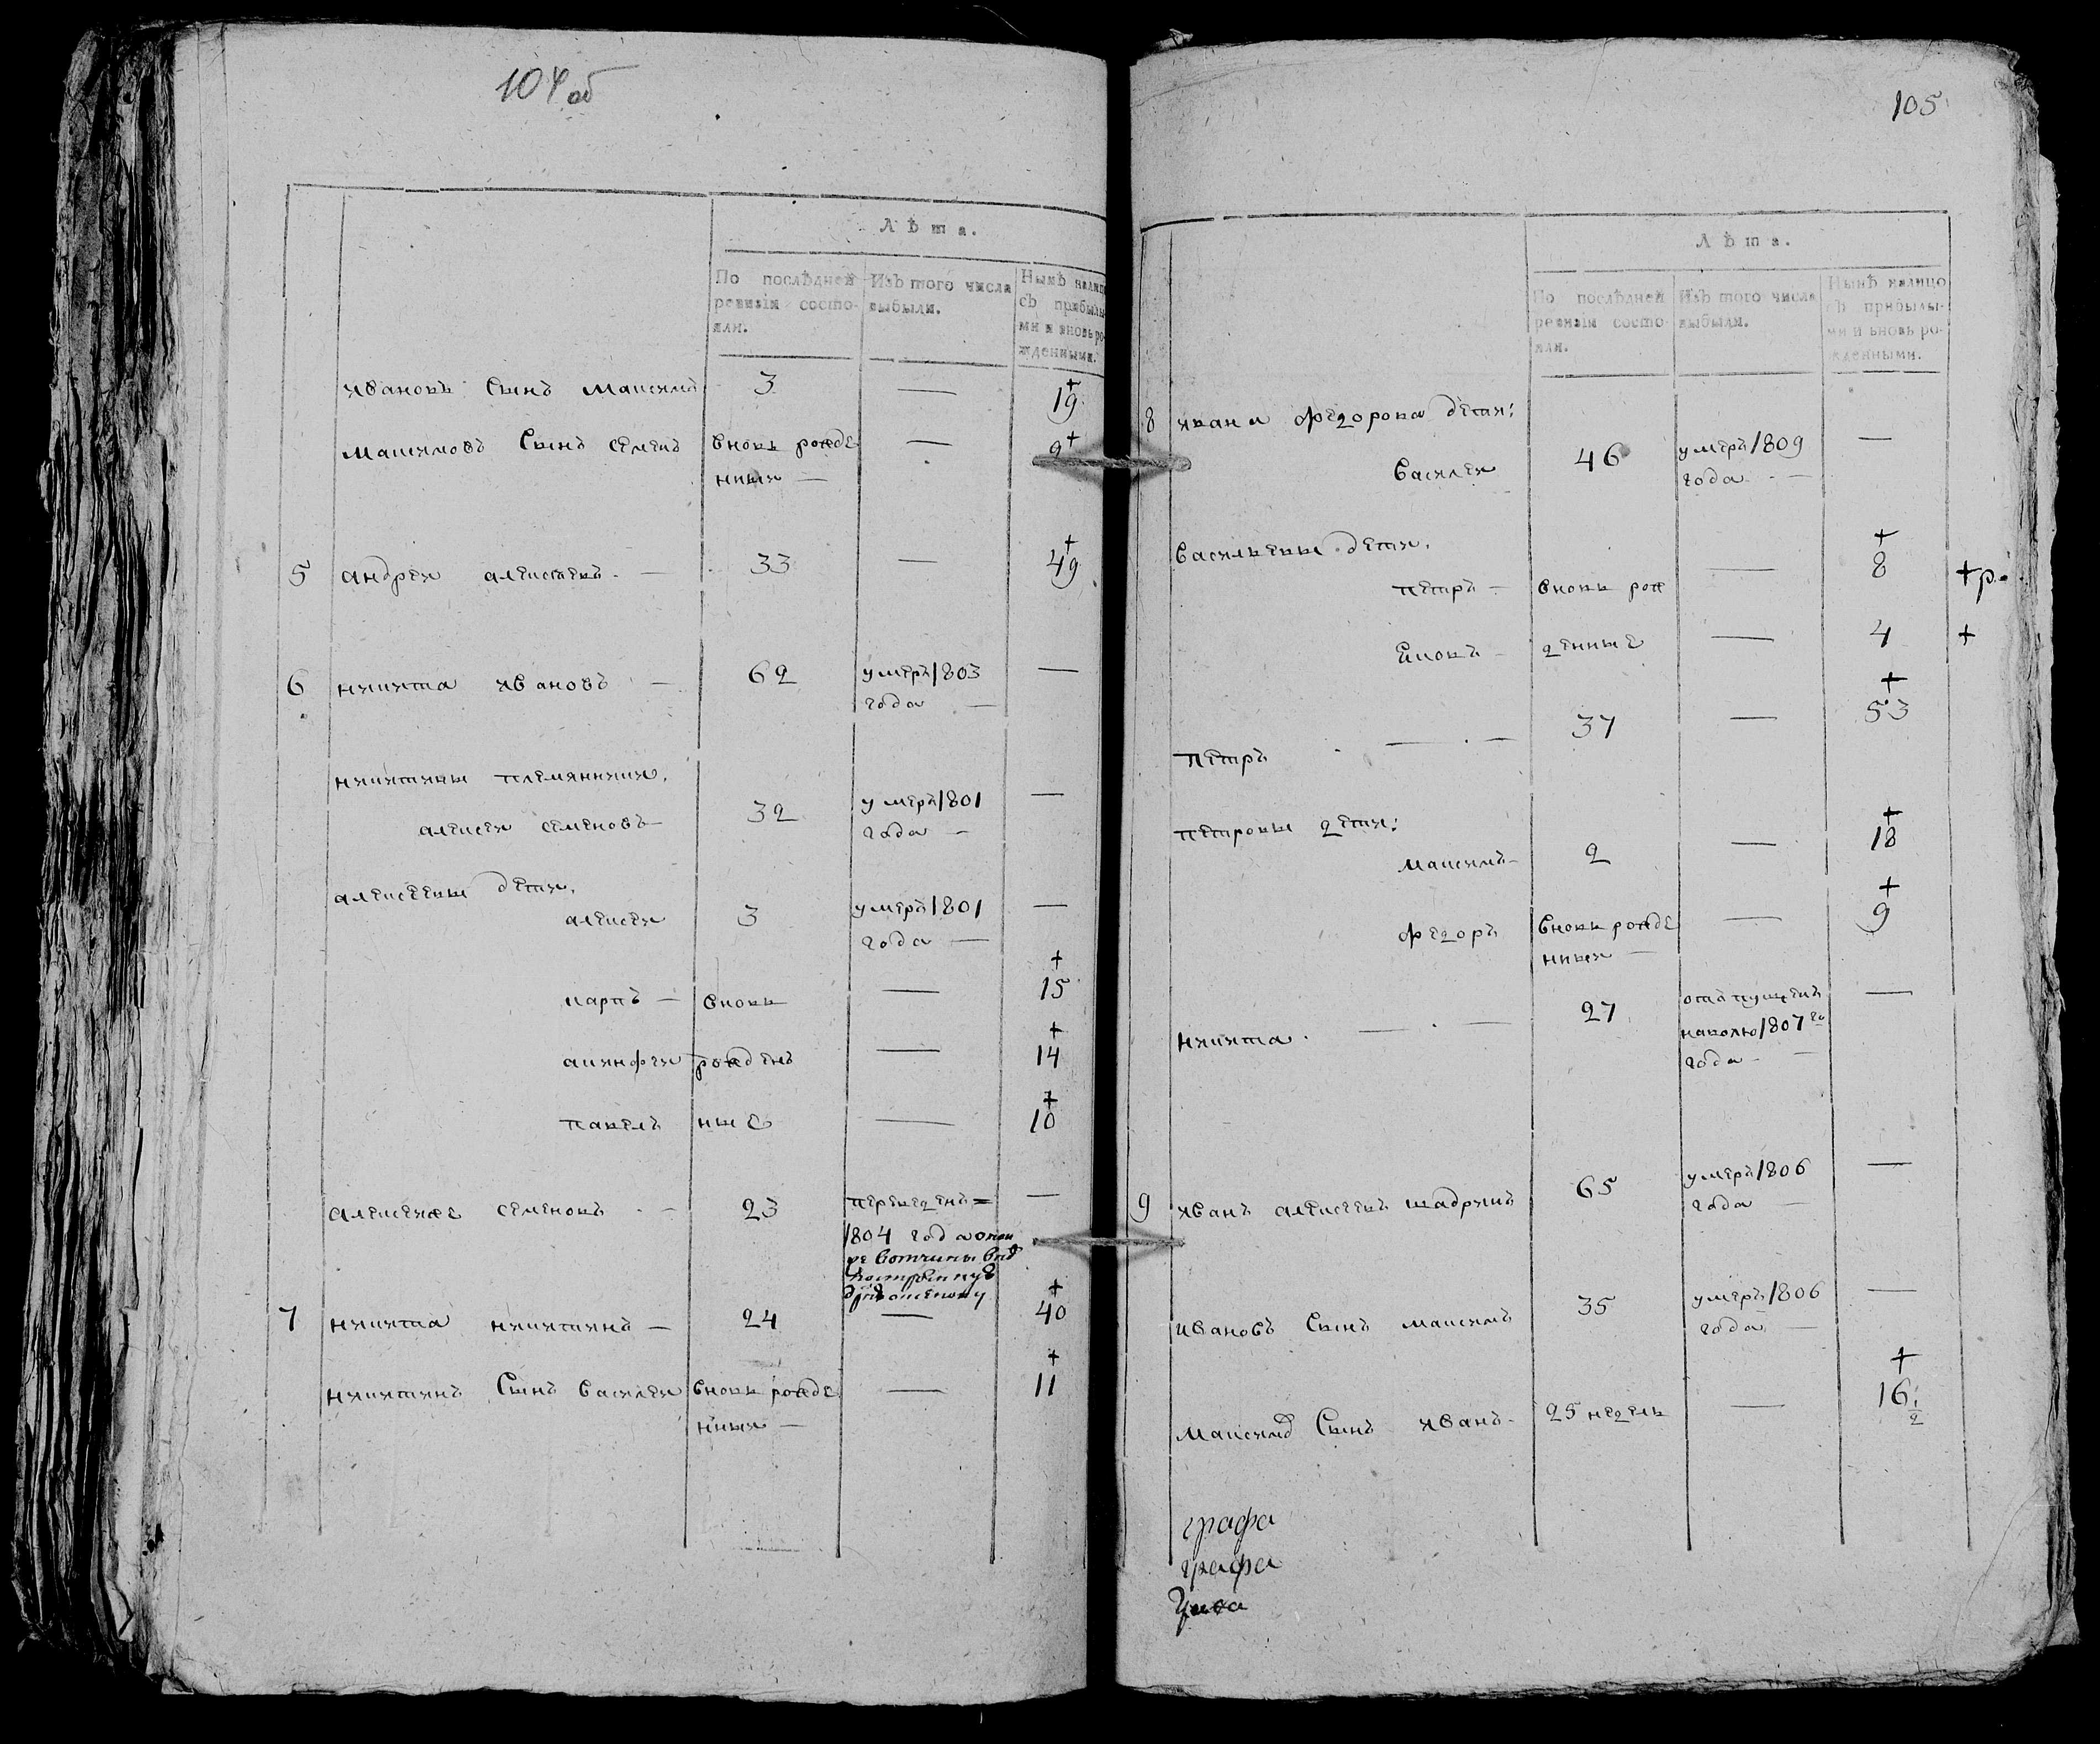 104 об
Лѣта.
По послѣдней Изъ того числа Нынѣ налицо
ревизіи состо- выбыли. съ прибылы-
яли. ми и вновь ро-
жденными.
ивановъ Сынъ максимъ 3 — 19
максимовъ Сынъ семенъ вновь рожде — 9
нныи —
5 андреи алексеевъ — 33 — 49
6 никита ивановъ — 62 умеръ 1803 —
года —
никитины племянники,
алексеи семеновъ — 32 умеръ 1801 —
года —
алексеевы дети,
алексеи 3 умеръ 1801 —
года —
карпъ — вновь — 15
акинфеи рожден — 14
павелъ ные — 10
семеновъ — 23 переведенъ = —
1804 года
вотчины
7 никита никитинъ — 24 — 40
никитинъ Сынъ василеи вновь рожде — 11
нныи —
105
Лѣта.
По послѣдней Изъ того числа Нынѣ налицо
ревизіи состо- выбыли. съ прибылы-
яли. ми и вновь ро-
жденными.
8 ивана федорова дети:
василеи 46 умеръ 1809 —
года —
васильевы дети,
петръ — вновь рож — 8 + р.
денные — 4 +
петръ — 37 — 53
петровы дети:
максимъ — 2 — 18
федоръ вновь рожде — 9
нныи —
никита. — 27 отпущенъ —
наволю 1807 го
года —
9 иванъ алексеевъ шадринъ 65 умеръ 1806 —
года —
ивановъ Сынъ максимъ 35 умеръ 1806 —
года —
Сынъ иванъ — 25 недель — 16 1/2
графа
графа